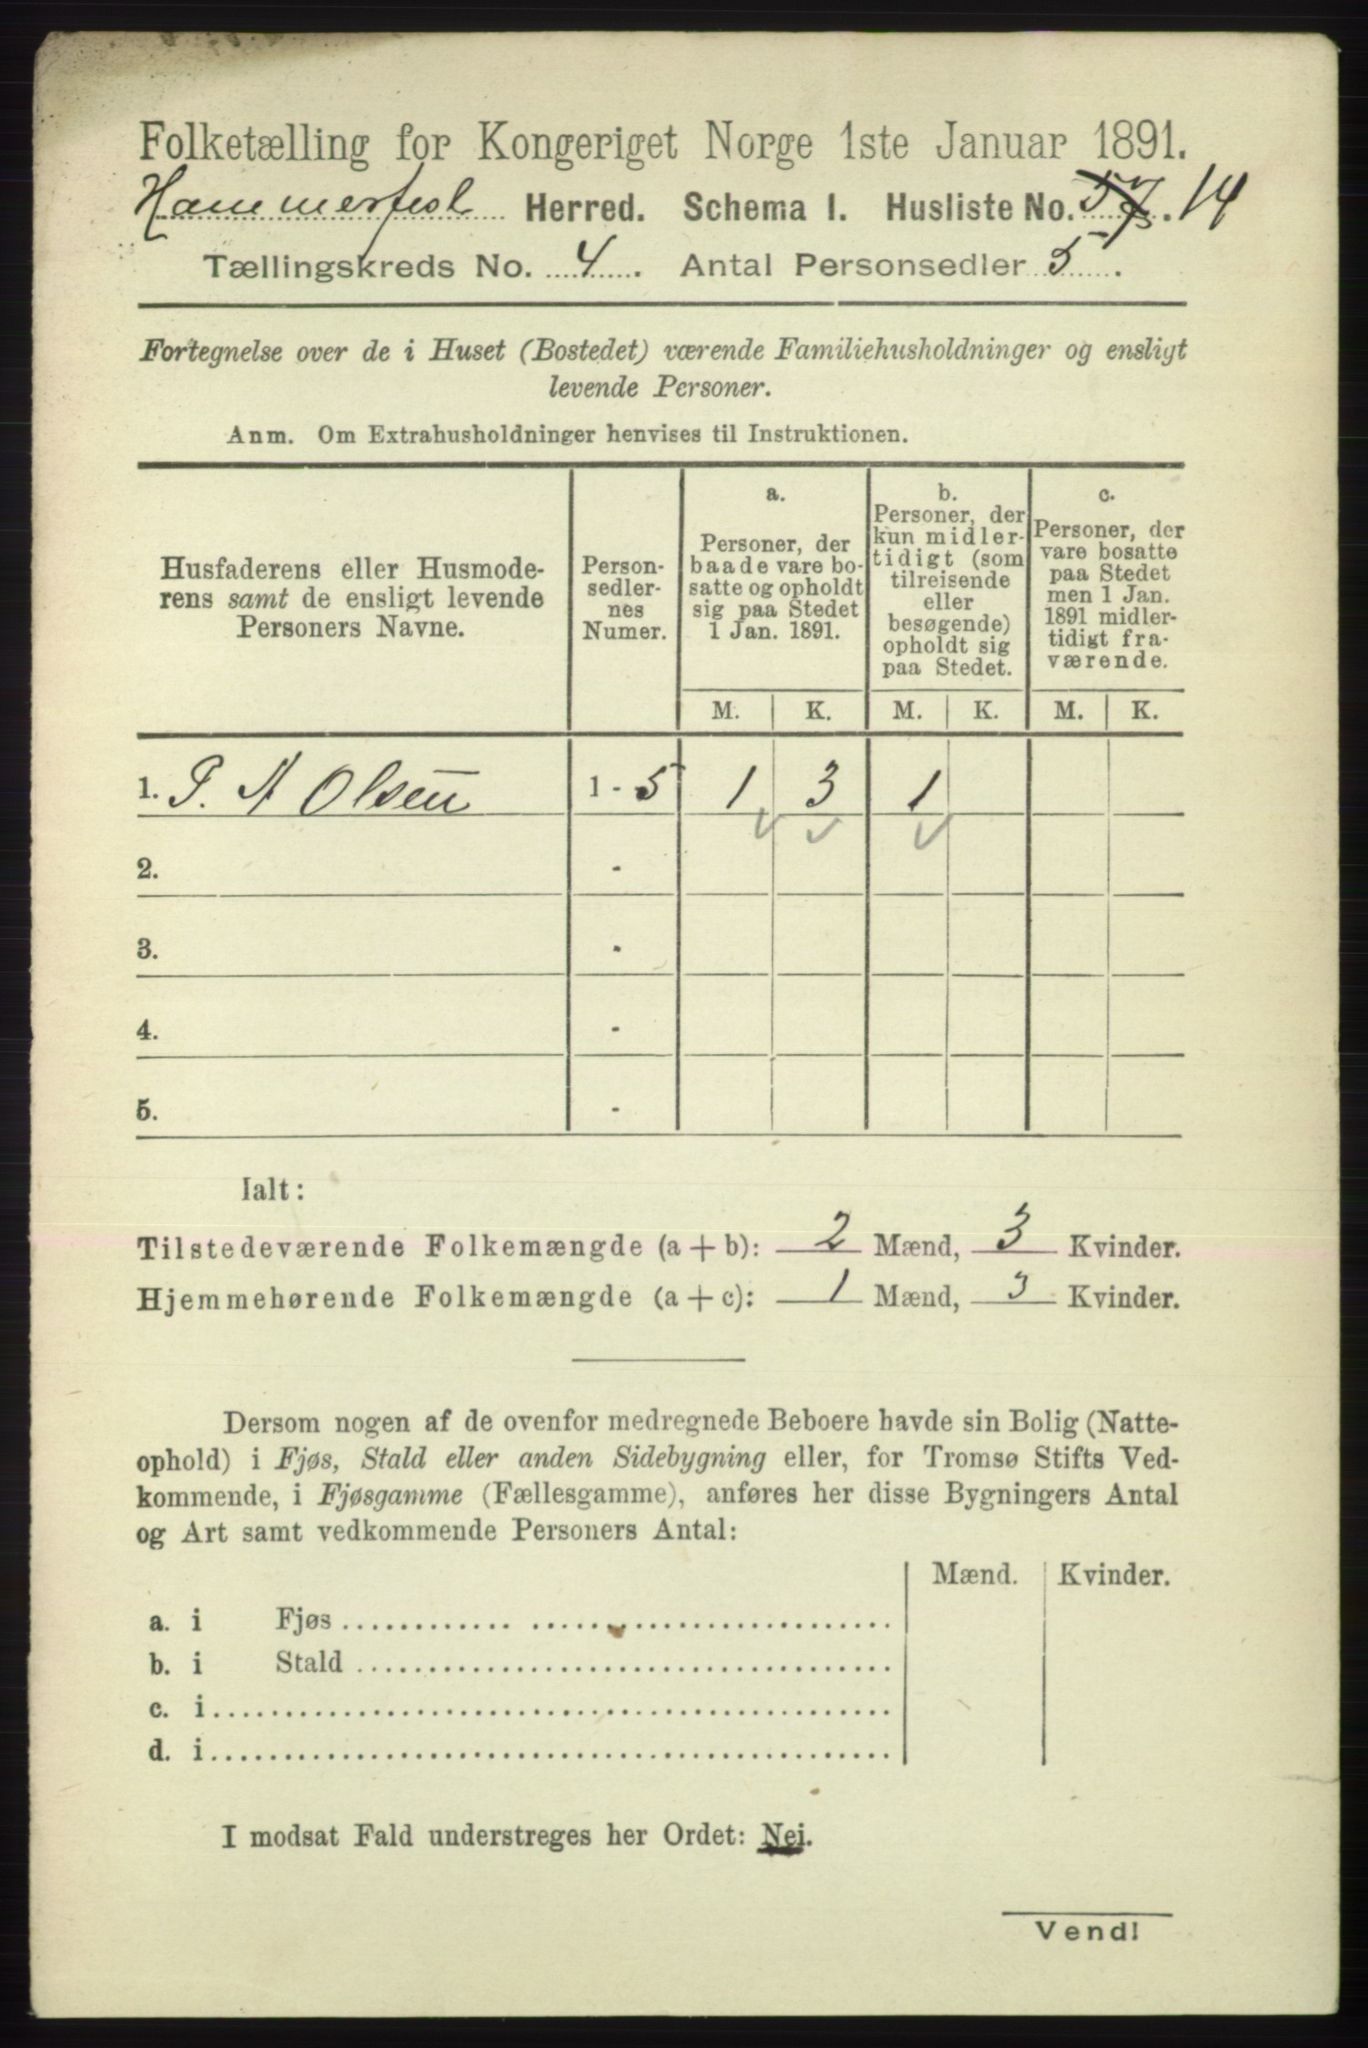 Folketælling for Kongeriget Norge 1ste Januar 1891.
Hammerfest Herred. Schema I. Husliste No. 14
Tællingskreds No. 4. Antal Personsedler 5.
Fortegnelse over de i Huset (Bostedet) værende Familiehusholdninger og ensligt
levende Personer.
Anm. Om Extrahusholdninger henvises til Instruktionen.
Husfaderens eller Husmode-
rens samt de ensligt levende
Personers Navne.
Person-
sedler-
nes
Numer.
a.
Personer, der
baade vare bo-
satte og opholdt
sig paa Stedet
1 Jan. 1891.
b.
Personer, der
kun midler-
tidigt (som
tilreisende
eller
besøgende)
opholdt sig
paa Stedet.
c.
Personer, der
vare bosatte
paa Stedet
men 1 Jan.
1891 midler-
tidigt fra-
værende.
M. K. M. K. M. K.
1. P. A Olsen 1 - 5 1 3 1
2. -
3. -
4. -
5. -
Ialt:
Tilstedeværende Folkemængde (a + b): 2 Mænd, 3 Kvinder.
Hjemmehørende Folkemængde (a + c): 1 Mænd, 3 Kvinder.
Dersom nogen af de ovenfor medregnede Beboere havde sin Bolig (Natte-
ophold) i Fjøs, Stald eller anden Sidebygning eller, for Tromsø Stifts Ved-
kommende, i Fjøsgamme (Fællesgamme), anføres her disse Bygningers Antal
og Art samt vedkommende Personers Antal:
Mænd. Kvinder.
a. i Fjøs
b. i Stald
c. i
d. i
I modsat Fald understreges her Ordet: Nei.
Vend!